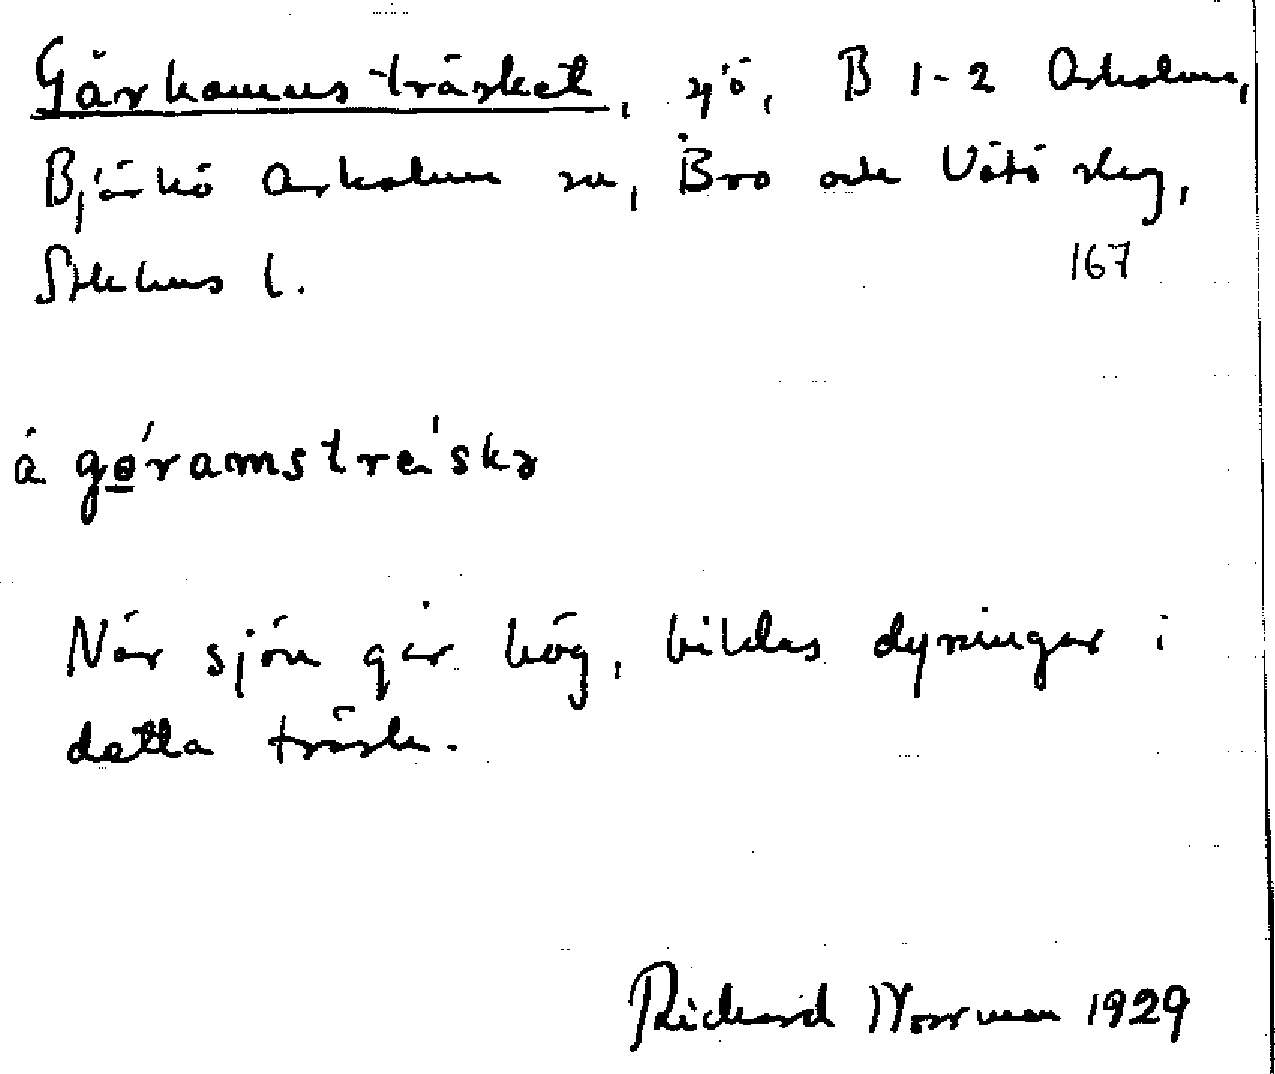 Gårhamnsträsket, sjö, B 1-2 Arholma,
Björkö Arholma sn, Bro och Vätö skg,
Sthlms l.
167
å gǿ̱ramstre´ska
När sjön går hög, bildas dyningar i
detta träsk.
Richard Norrman 1929